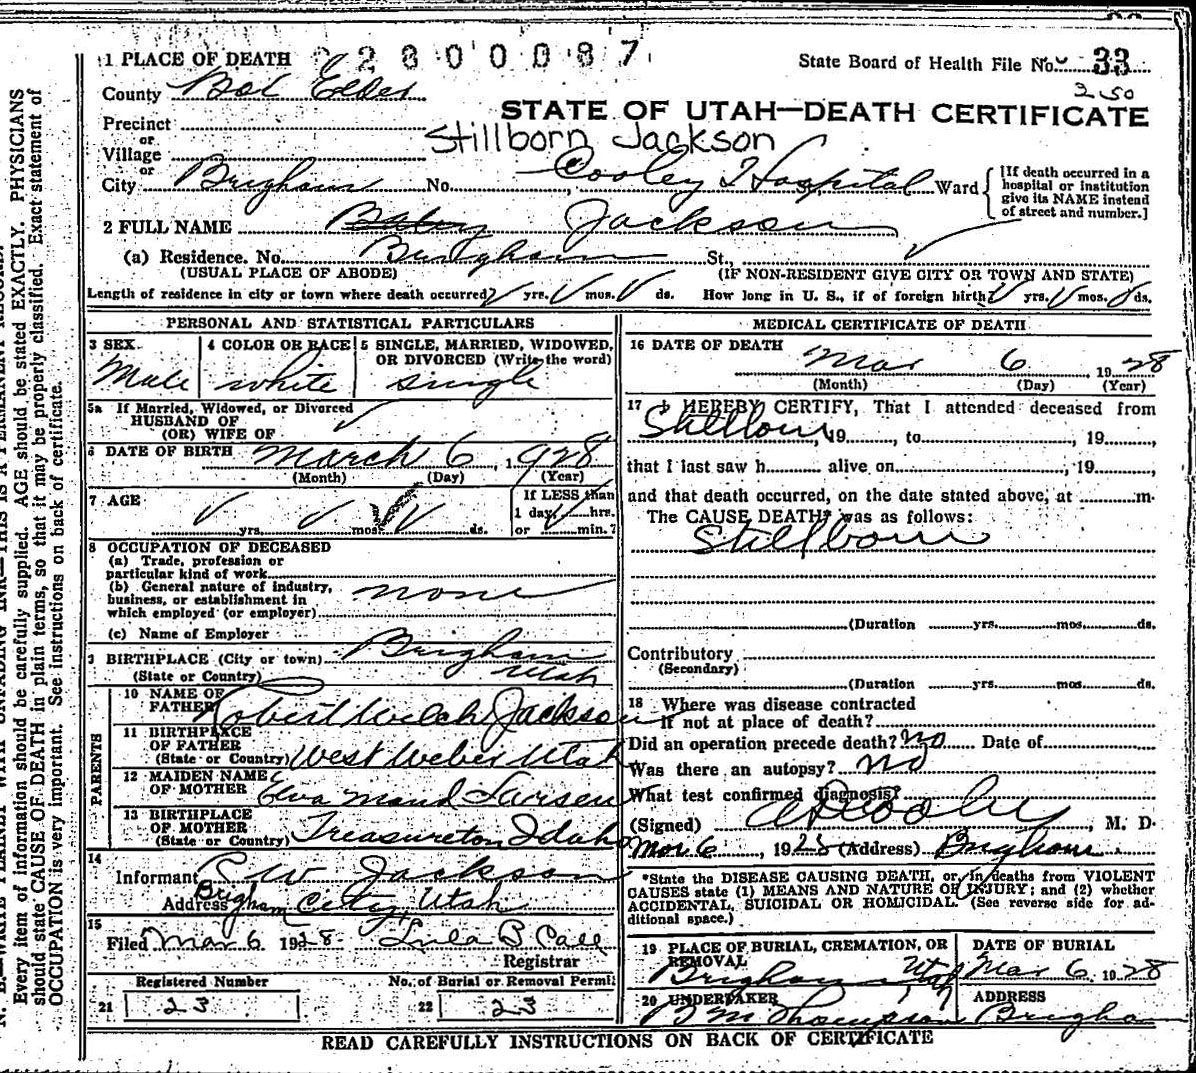 1 PLACE OF DEATH 2800087
State Board of Health File No. 33
County Box Elder
250
STATE OF UTAH—DEATH CERTIFICATE
Precinct
or
Stillborn Jackson
Village
or
City Brigham No. Cooley Hospital St., Ward
[If death occurred in a
hospital or institution
give its NAME instead
of street and number.]
2 FULL NAME Baby Jackson
(a) Residence. No. Brigham St.,
(USUAL PLACE OF ABODE) (IF NON-RESIDENT GIVE CITY OR TOWN AND STATE)
Length of residence in city or town where death occurred? yrs. mos. ds. How long in U. S., if of foreign birth? yrs. mos. ds.
PERSONAL AND STATISTICAL PARTICULARS
3 SEX 4 COLOR OR RACE 5 SINGLE, MARRIED, WIDOWED,
OR DIVORCED (Write the word)
Male white single
5a If Married, Widowed, or Divorced
HUSBAND OF
(OR) WIFE OF
6 DATE OF BIRTH March 6, 1928
(Month) (Day) (Year)
7 AGE
If LESS than
1 day, hrs.
yrs. mos. ds. or min.?
8 OCCUPATION OF DECEASED
(a) Trade, profession or
particular kind of work
(b) General nature of industry,
business, or establishment in
which employed (or employer) none
(c) Name of Employer
9 BIRTHPLACE (City or town) Brigham
(State or Country) Utah
PARENTS
10 NAME OF
FATHER Robert Welch Jackson
11 BIRTHPLACE
OF FATHER
(State or Country) West Weber Utah
12 MAIDEN NAME
OF MOTHER Elva Maud Larsen
13 BIRTHPLACE
OF MOTHER
(State or Country) Treasureton Idaho
14
Informant R W Jackson
Address Brigham City, Utah
15
Filed Mar 6 1928 Lula B Call
Registrar
Registered Number No. of Burial or Removal Permit
21 23 22 23
MEDICAL CERTIFICATE OF DEATH
16 DATE OF DEATH
Mar 6 1928
(Month) (Day) (Year)
17 I HEREBY CERTIFY, That I attended deceased from
Stillborn, 19, to, 19,
that I last saw h alive on, 19
and that death occurred, on the date stated above, at m.
The CAUSE DEATH* was as follows:
Stillborn
(Duration yrs. mos. ds.
Contributory
(Secondary)
(Duration yrs. mos. ds.
18 Where was disease contracted
If not at place of death?
Did an operation precede death? No Date of
Was there an autopsy? No
What test confirmed diagnosis?
(Signed) Cooley, M. D.
Mar 6, 1928 (Address) Brigham
*State the DISEASE CAUSING DEATH, or, in deaths from VIOLENT
CAUSES state (1) MEANS AND NATURE OF INJURY; and (2) whether
ACCIDENTAL, SUICIDAL OR HOMICIDAL. (See reverse side for ad-
ditional space.)
19 PLACE OF BURIAL, CREMATION, OR
REMOVAL
Brigham Utah
DATE OF BURIAL
Mar 6 1928
20 UNDERTAKER
B M Thompson
ADDRESS
Brigham
READ CAREFULLY INSTRUCTIONS ON BACK OF CERTIFICATE
Every item of information should be carefully supplied. AGE should be stated EXACTLY. PHYSICIANS
should state CAUSE OF DEATH in plain terms, so that it may be properly classified. Exact statement of
OCCUPATION is very important. See instructions on back of certificate.